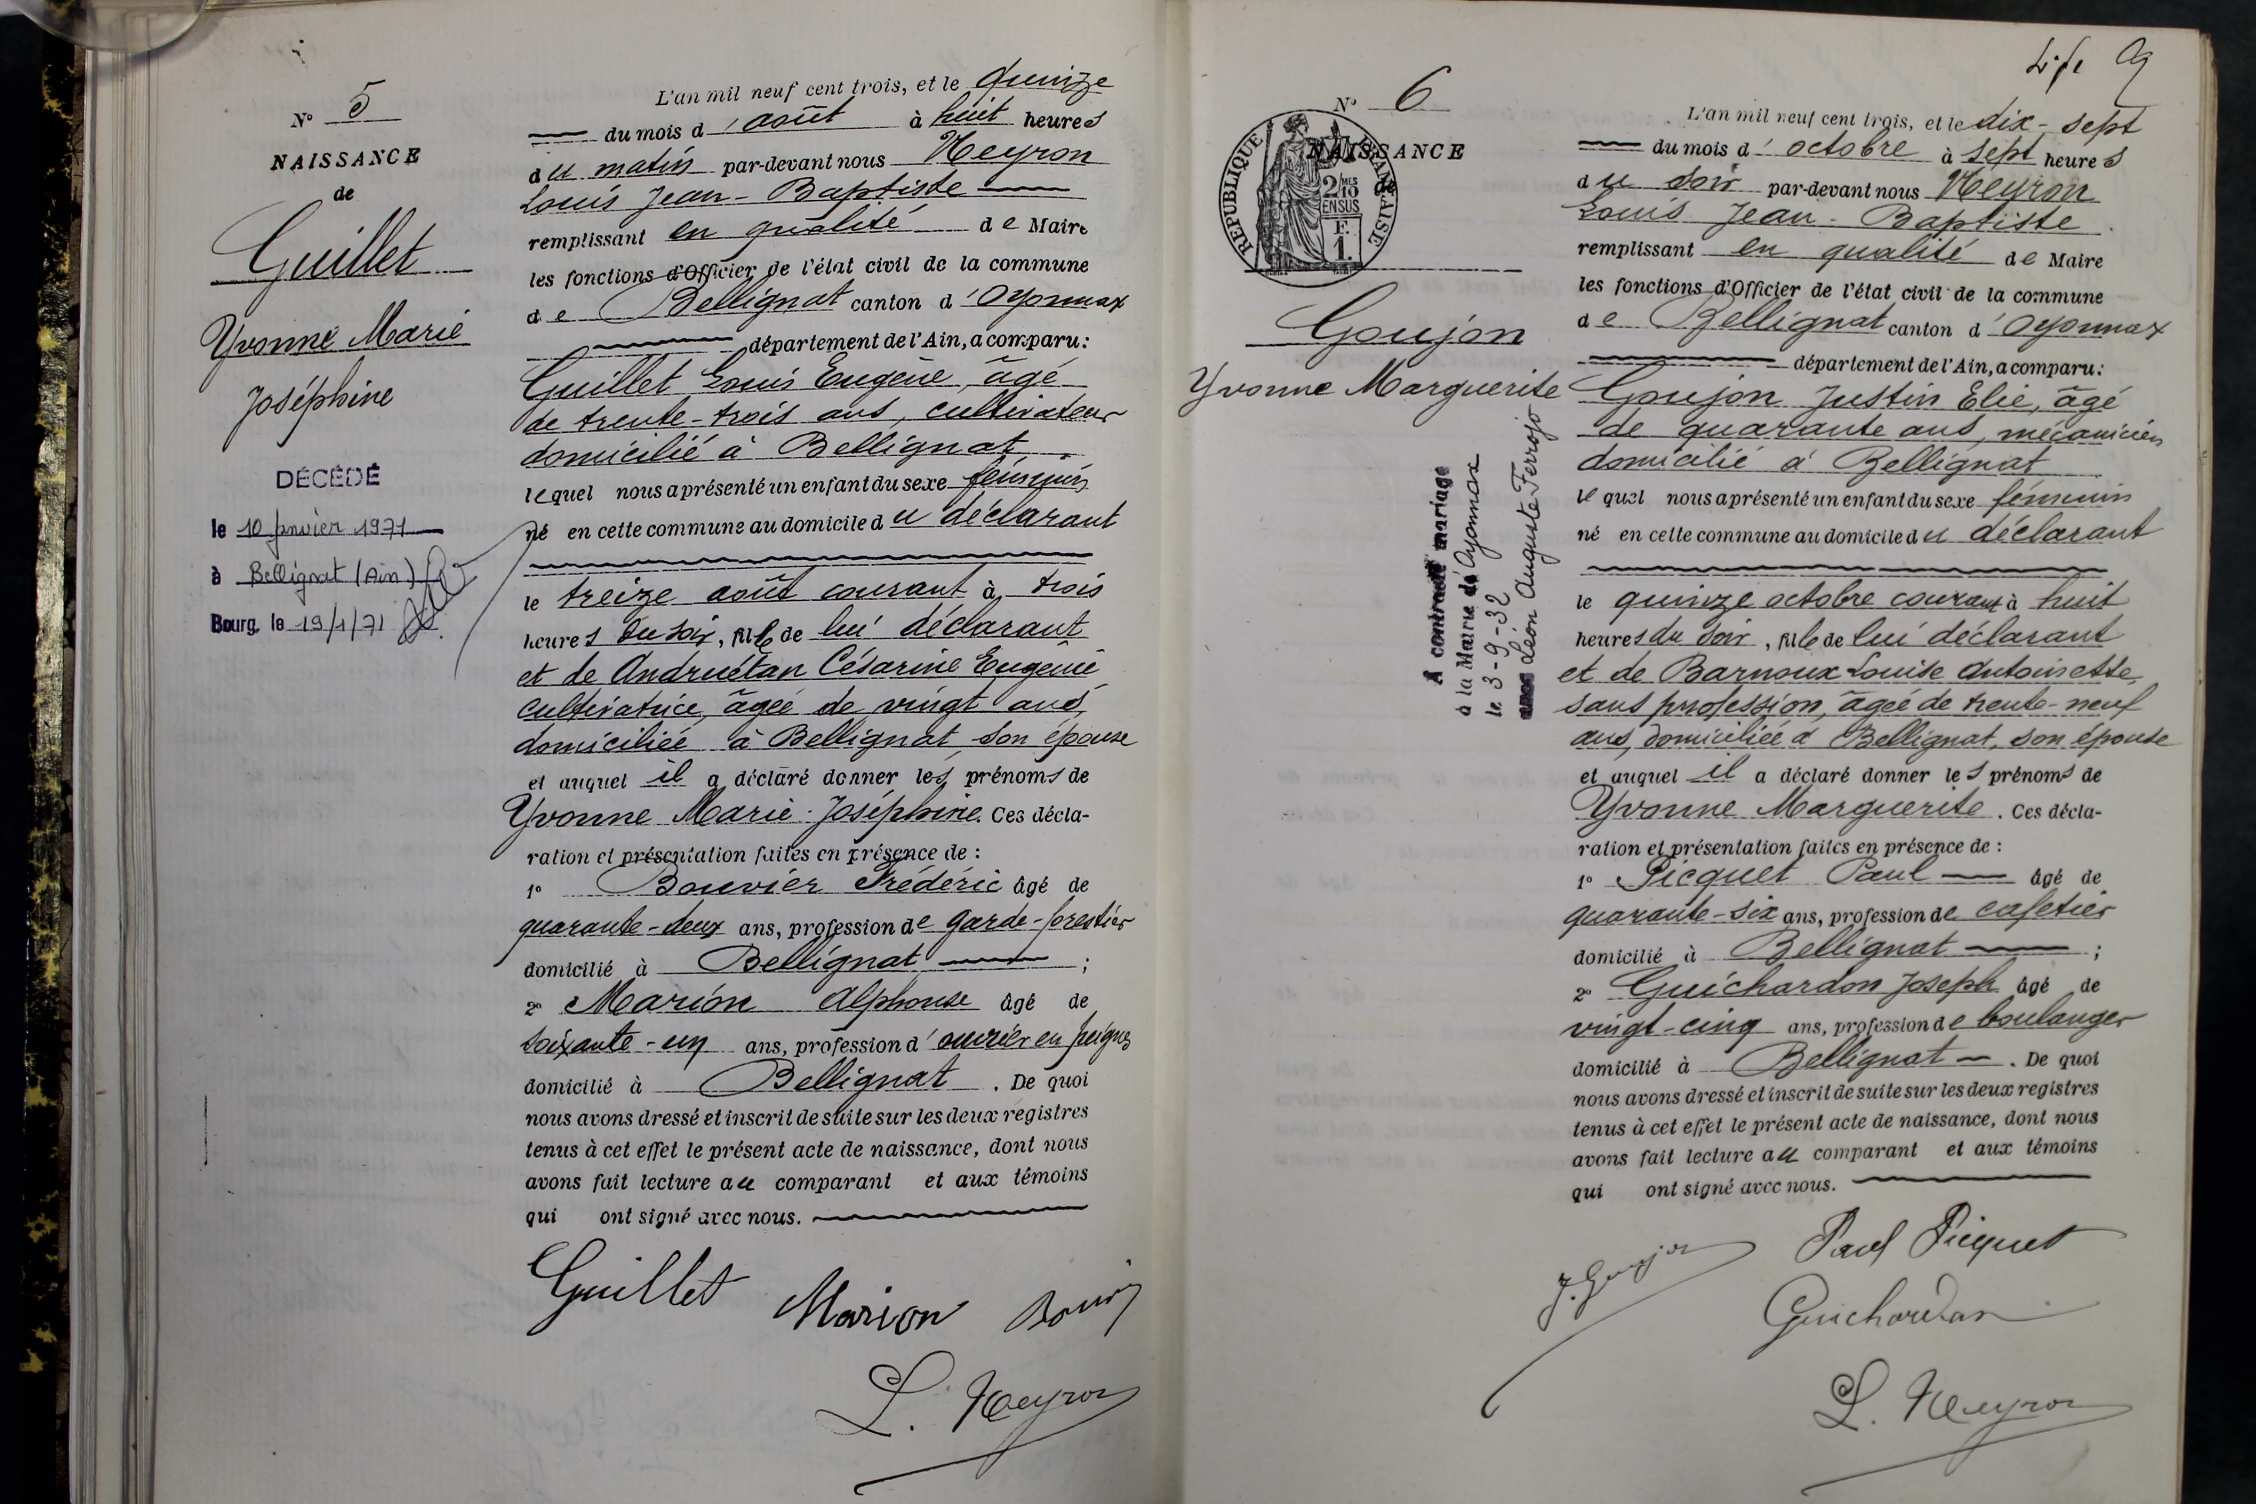 N° 5
NAISSANCE
de
Guillet
Yvonne Marie
Joséphine
DÉCÉDÉ
le 10 janvier 1971
à Bellignat (Ain)
Bourg, le 19/1/71
L'an mil neuf cent trois, et le quinze
du mois d'août à huit heures
du matin par-devant nous Neyron
Louis Jean-Baptiste
remplissant en qualité de Maire
les fonctions d'Officier de l'état civil de la commune
de Bellignat canton d'Oyonnax
département de l'Ain, a comparu:
Guillet Louis Eugène, âgé
de trente-trois ans, cultivateur
domicilié à Bellignat
lequel nous a présenté un enfant du sexe féminin
né en cette commune au domicile du déclarant
le treize août courant à trois
heures du soir, fille de lui déclarant
et de Andruétan Césarine Eugénie
cultivatrice, âgée de vingt ans,
domiciliée à Bellignat, son épouse
et auquel il a déclaré donner les prénoms de
Yvonne Marie Joséphine. Ces décla-
ration et présentation faites en présence de :
1° Bouvier Frédéric âgé de
quarante-deux ans, profession de garde-forestier
domicilié à Bellignat ;
2° Marion Alphonse âgé de
soixante-un ans, profession d'ouvrier en peignes
domicilié à Bellignat. De quoi
nous avons dressé et inscrit de suite sur les deux registres
tenus à cet effet le présent acte de naissance, dont nous
avons fait lecture au comparant et aux témoins
qui ont signé avec nous.
Guillet Marion
L. Neyron
N° 6
NAISSANCE
de
RÉPUBLIQUE FRANÇAISE
2/10 MES
EN SUS
F.
1.
Goujon
Yvonne Marguerite
A contracté mariage
à la Mairie de Oyonnax
le 3-9-32
avec Léon Auguste Ferrojo
L'an mil neuf cent trois, et le dix-sept
du mois d'octobre à sept heures
du soir par-devant nous Neyron
Louis Jean-Baptiste
remplissant en qualité de Maire
les fonctions d'Officier de l'état civil de la commune
de Bellignat canton d'Oyonnax
département de l'Ain, a comparu:
Goujon Justin Elie, âgé
de quarante ans, mécanicien
domicilié à Bellignat
lequel nous a présenté un enfant du sexe féminin
né en cette commune au domicile du déclarant
le quinze octobre courant à huit
heures du soir, fille de lui déclarant
et de Barnoux Louise Antoinette,
sans profession, âgée de trente-neuf
ans, domiciliée à Bellignat, son épouse
et auquel il a déclaré donner les prénoms de
Yvonne Marguerite. Ces décla-
ration et présentation faites en présence de :
1° Picquet Paul âgé de
quarante-six ans, profession de cafetier
domicilié à Bellignat ;
2° Guichardon Joseph âgé de
vingt-cinq ans, profession de boulanger
domicilié à Bellignat. De quoi
nous avons dressé et inscrit de suite sur les deux registres
tenus à cet effet le présent acte de naissance, dont nous
avons fait lecture au comparant et aux témoins
qui ont signé avec nous.
J. Goujon Paul Picquet
Guichardon
L. Neyron